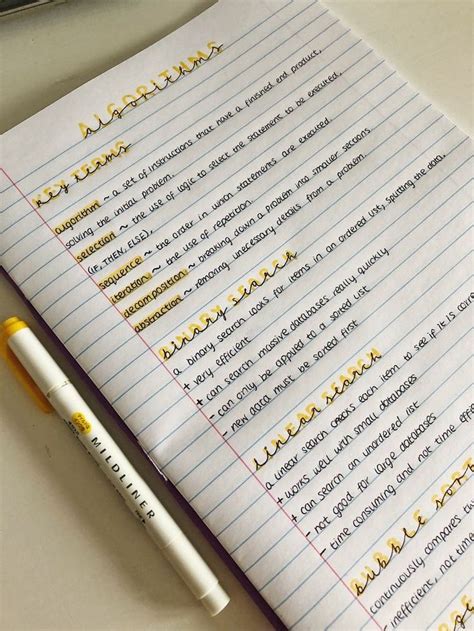 ALGORITHMS
algorithms
KEY TERMS
algorithm ~ a set of instructions that have a finished end product,
solving the initial problem.
selection ~ the use of logic to select the statement to be executed.
(IF, THEN, ELSE).
sequence ~ the order in which statements are executed.
iteration ~ the use of repetition.
decomposition ~ breaking down a problem into smaller sections
abstraction ~ removing unnecessary details from a problem.
BINARY SEARCH
binary search
a binary search looks for items in an ordered list, splitting the data.
+ very efficient
+ can search massive databases really quickly
- can only be applied to a sorted list
- new data must be sorted first
LINEAR SEARCH
linear search
a linear search checks each item to see if it is corr
+ works well with small databases
+ can search an unordered list
- not good for large databases
- time consuming and not time effi
BUBBLE SORT
bubble sort
continuously compares tw
- inefficient, not time
MILDLINER